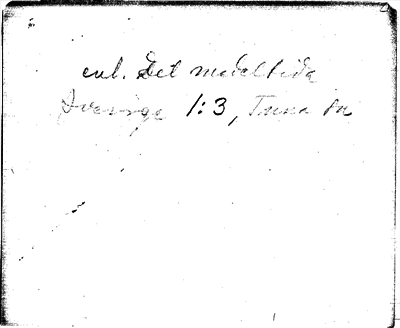 enl. Det medeltida
Sverige 1:3, Tuna sn